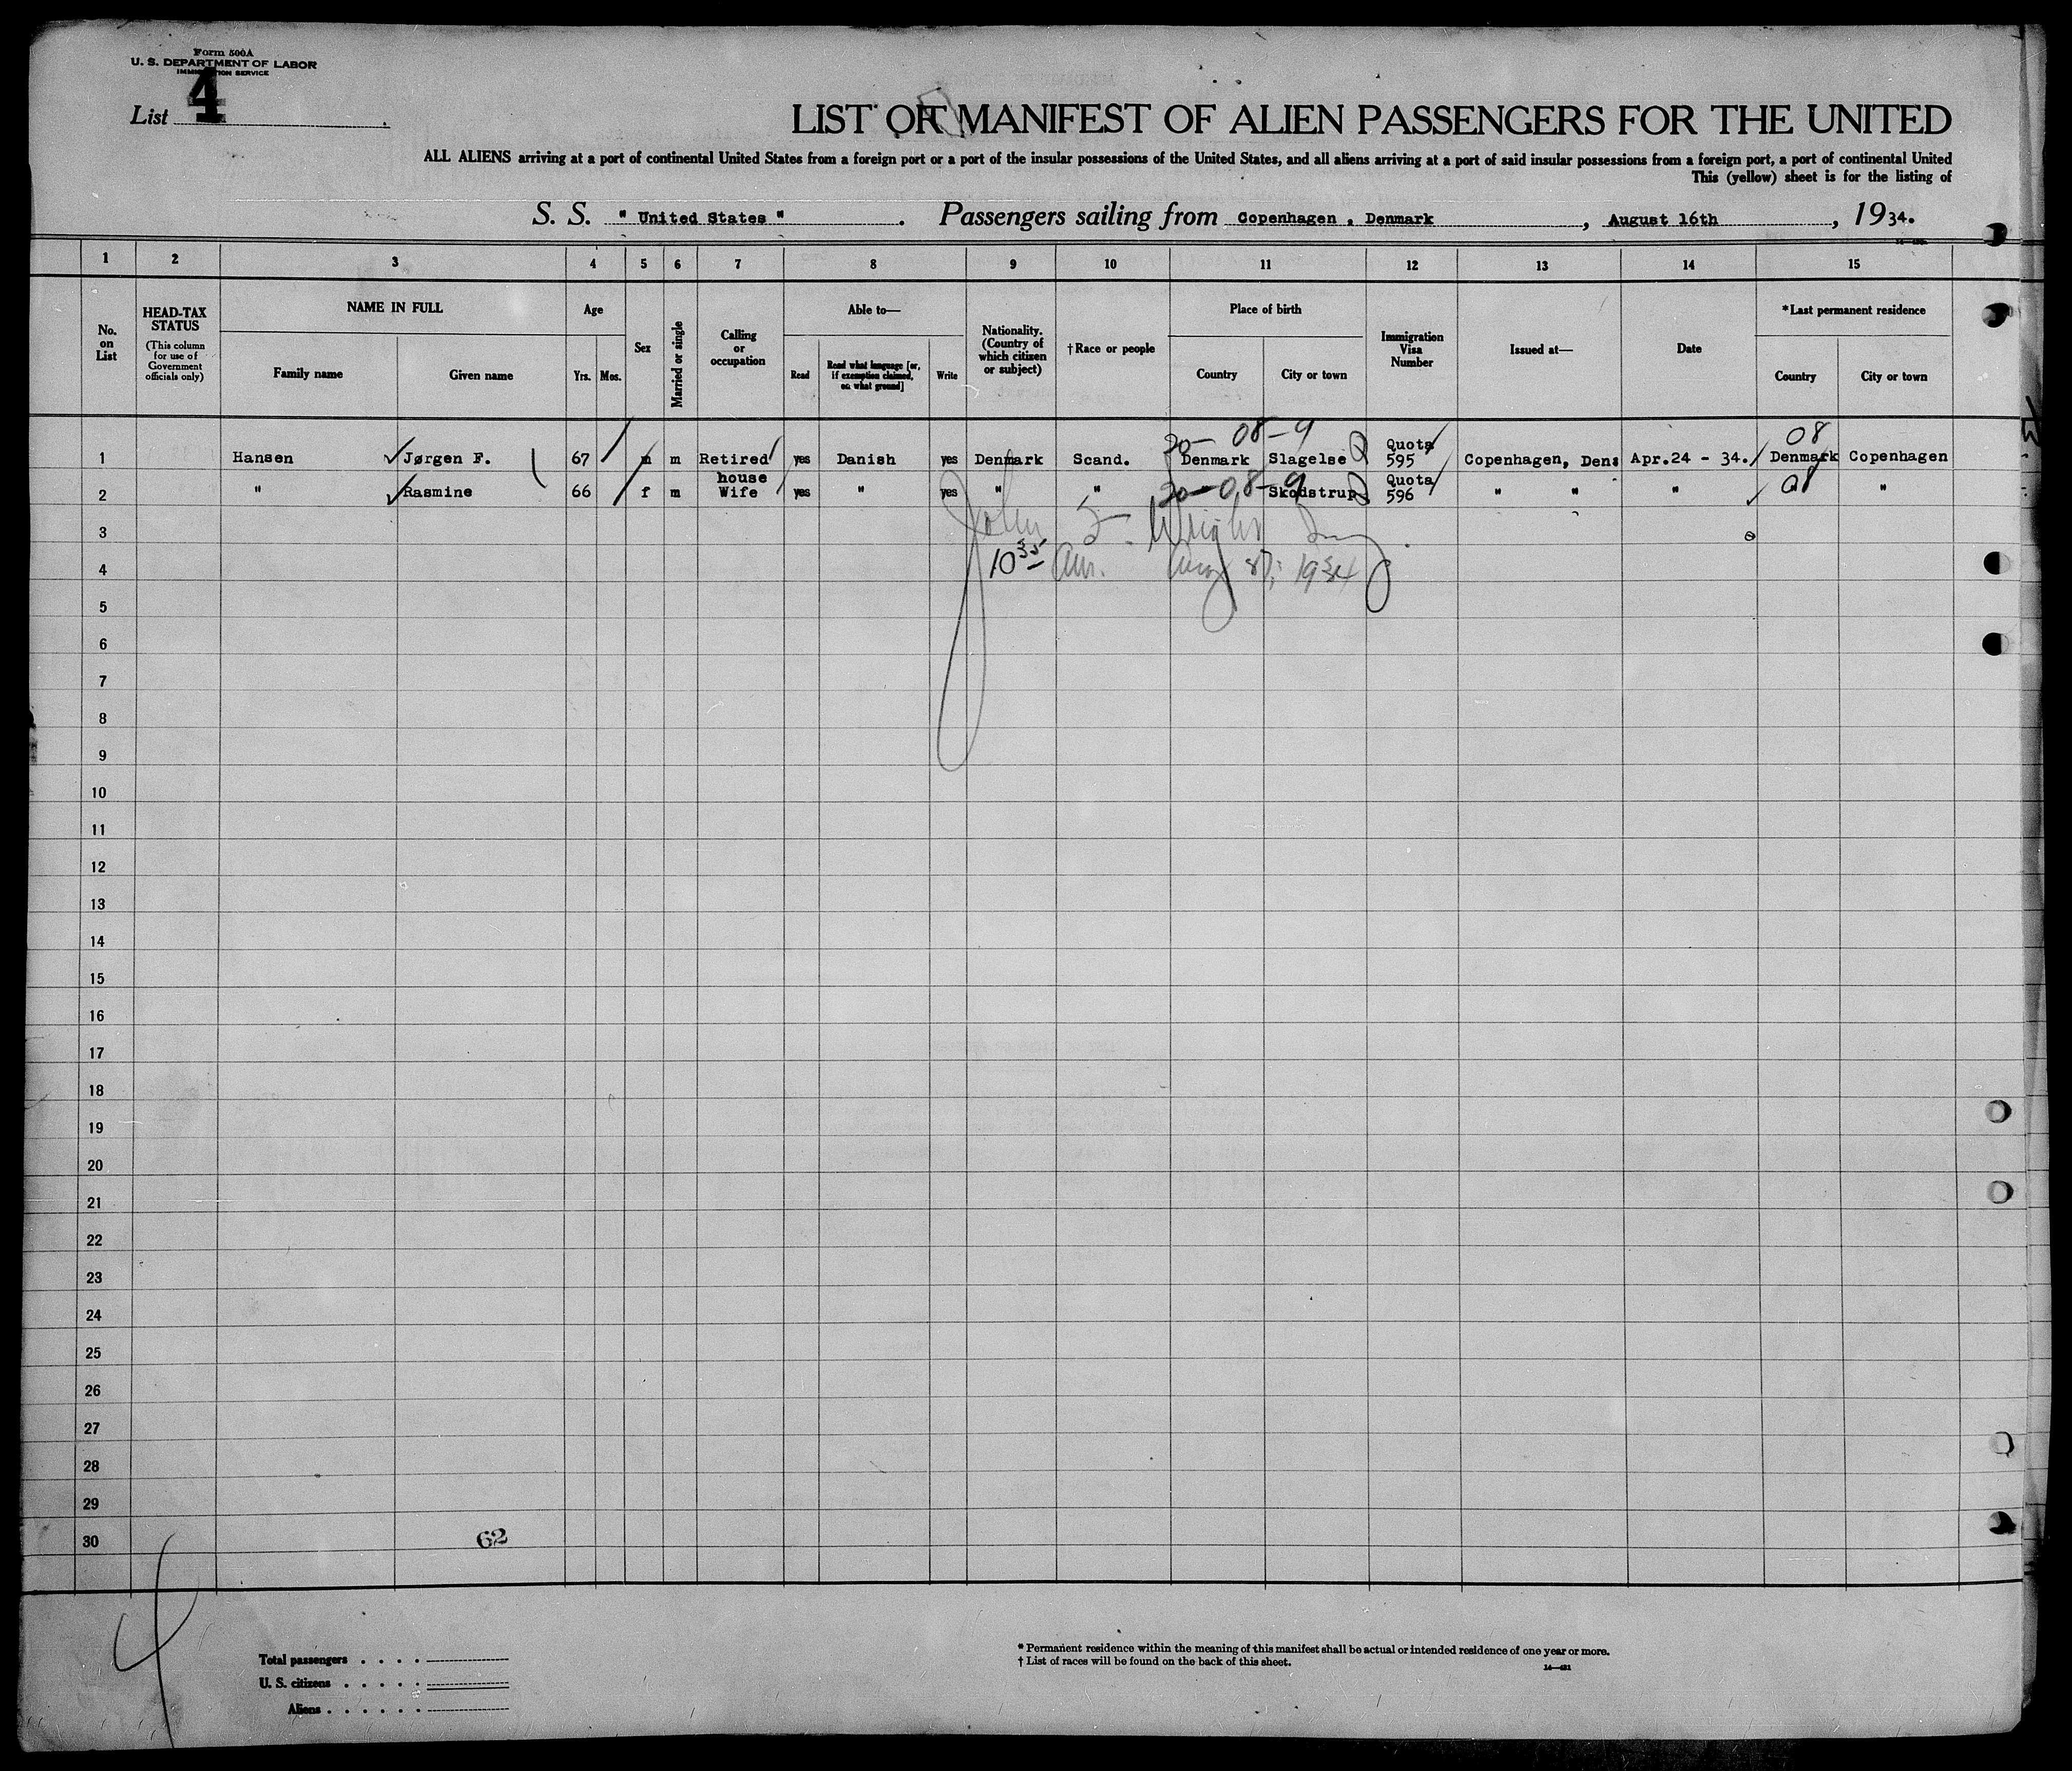 Form 500A
U. S. DEPARTMENT OF LABOR
IMMIGRATION SERVICE
List 4
LIST OR MANIFEST OF ALIEN PASSENGERS FOR THE UNITED
ALL ALIENS arriving at a port of continental United States from a foreign port or a port of the insular possessions of the United States, and all aliens arriving at a port of said insular possessions from a foreign port, a port of continental United
This (yellow) sheet is for the listing of
S. S. " United States ". Passengers sailing from Copenhagen , Denmark, August 16th, 1934.
1 2 3 4 5 6 7 8 9 10 11 12 13 14 15
No. on List
HEAD-TAX STATUS
(This column for use of Government officials only)
NAME IN FULL
Family name Given name
Age
Yrs. Mos.
Sex
Married or single
Calling or occupation
Able to—
Read
Read what language [or, if exemption claimed, on what ground]
Write
Nationality. (Country of which citizen or subject)
† Race or people
Place of birth
Country City or town
Immigration Visa Number
Issued at—
Date
*Last permanent residence
Country City or town
20- 08-9 08
1 Hansen Jørgen F. 67 m m Retired yes Danish yes Denmark Scand. Denmark Slagelse Q Quota 595 Copenhagen, Den: Apr.24 - 34. Denmark Copenhagen
2 " Rasmine 66 f m house Wife yes " yes " " 20-08-9 Skodstrup Quota 596 " " " 08 "
3 John Wright
4 10 35 Am. Aug 1934
5
6
7
8
9
10
11
12
13
14
15
16
17
18
19
20
21
22
23
24
25
26
27
28
29
30
62
4
Total passengers . . . .
U. S. citizens . . . . .
Aliens . . . . . .
* Permanent residence within the meaning of this manifest shall be actual or intended residence of one year or more.
† List of races will be found on the back of this sheet.